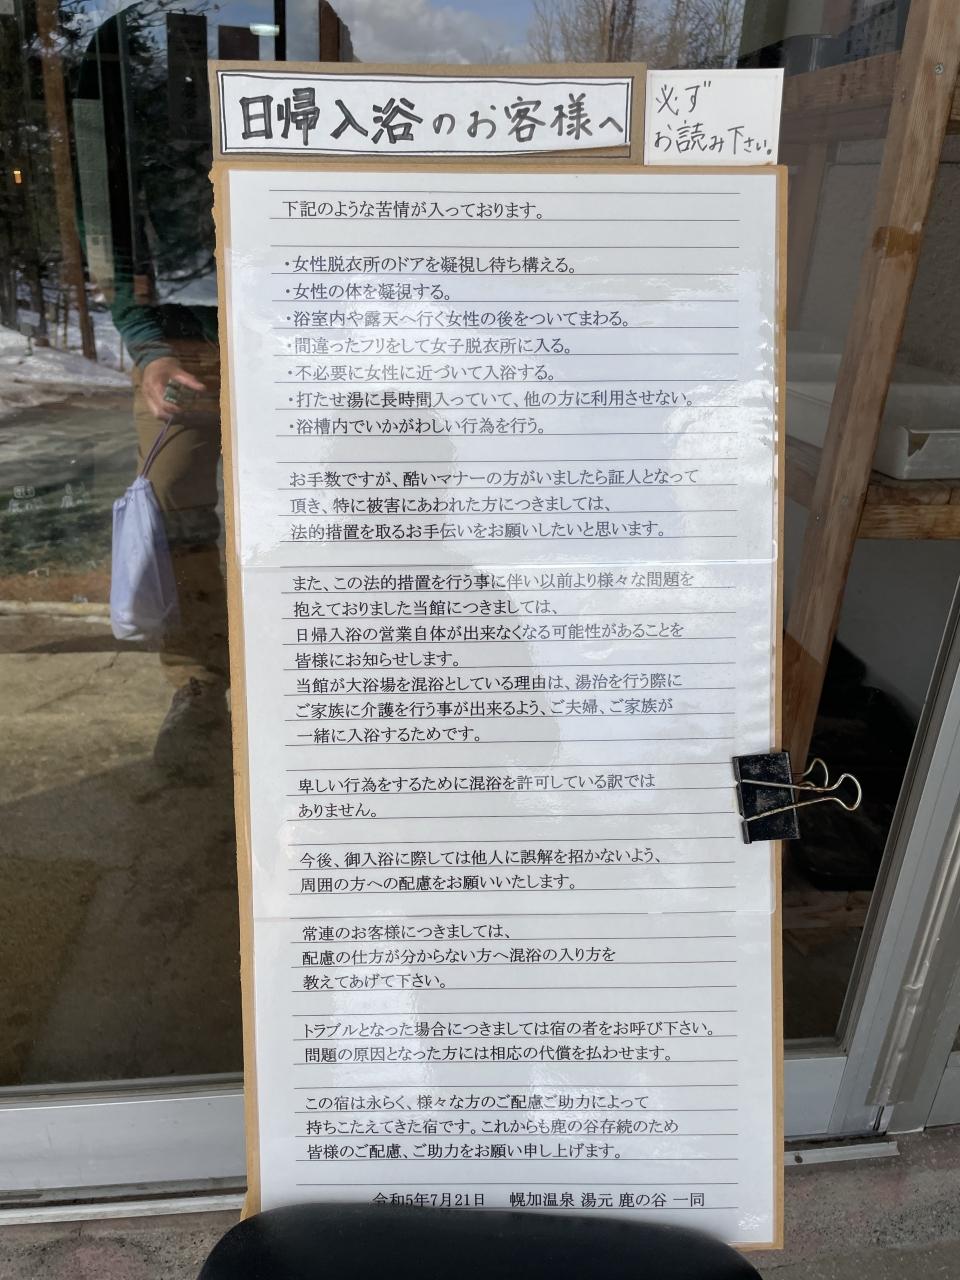 日帰入浴のお客様へ
必ず
お読み下さい。
下記のような苦情が入っております。
・女性脱衣所のドアを凝視し待ち構える。
・女性の体を凝視する。
・浴室内や露天へ行く女性の後をついてまわる。
・間違ったフリをして女子脱衣所に入る。
・不必要に女性に近づいて入浴する。
・打たせ湯に長時間入っていて、他の方に利用させない。
・浴槽内でいかがわしい行為を行う。
お手数ですが、酷いマナーの方がいましたら証人となって
頂き、特に被害にあわれた方につきましては、
法的措置を取るお手伝いをお願いしたいと思います。
また、この法的措置を行う事に伴い以前より様々な問題を
抱えておりました当館につきましては、
日帰入浴の営業自体が出来なくなる可能性があることを
皆様にお知らせします。
当館が大浴場を混浴としている理由は、湯治を行う際に
ご家族に介護を行う事が出来るよう、ご夫婦、ご家族が
一緒に入浴するためです。
卑しい行為をするために混浴を許可している訳では
ありません。
今後、御入浴に際しては他人に誤解を招かないよう、
周囲の方への配慮をお願いいたします。
常連のお客様につきましては、
配慮の仕方が分からない方へ混浴の入り方を
教えてあげて下さい。
トラブルとなった場合につきましては宿の者をお呼び下さい。
問題の原因となった方には相応の代償を払わせます。
この宿は永らく、様々な方のご配慮ご助力によって
持ちこたえてきた宿です。これからも鹿の谷存続のため
皆様のご配慮、ご助力をお願い申し上げます。
令和5年7月21日 幌加温泉 湯元 鹿の谷 一同